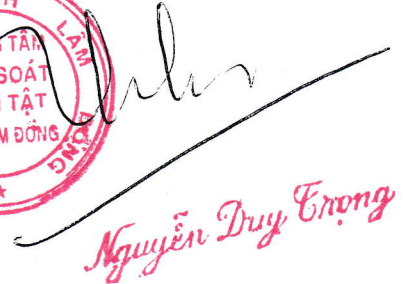 LÂM
TÂM
SOÁT
TẬT
M ĐỒNG
ĐỒNG
Nguyễn Duy Trọng